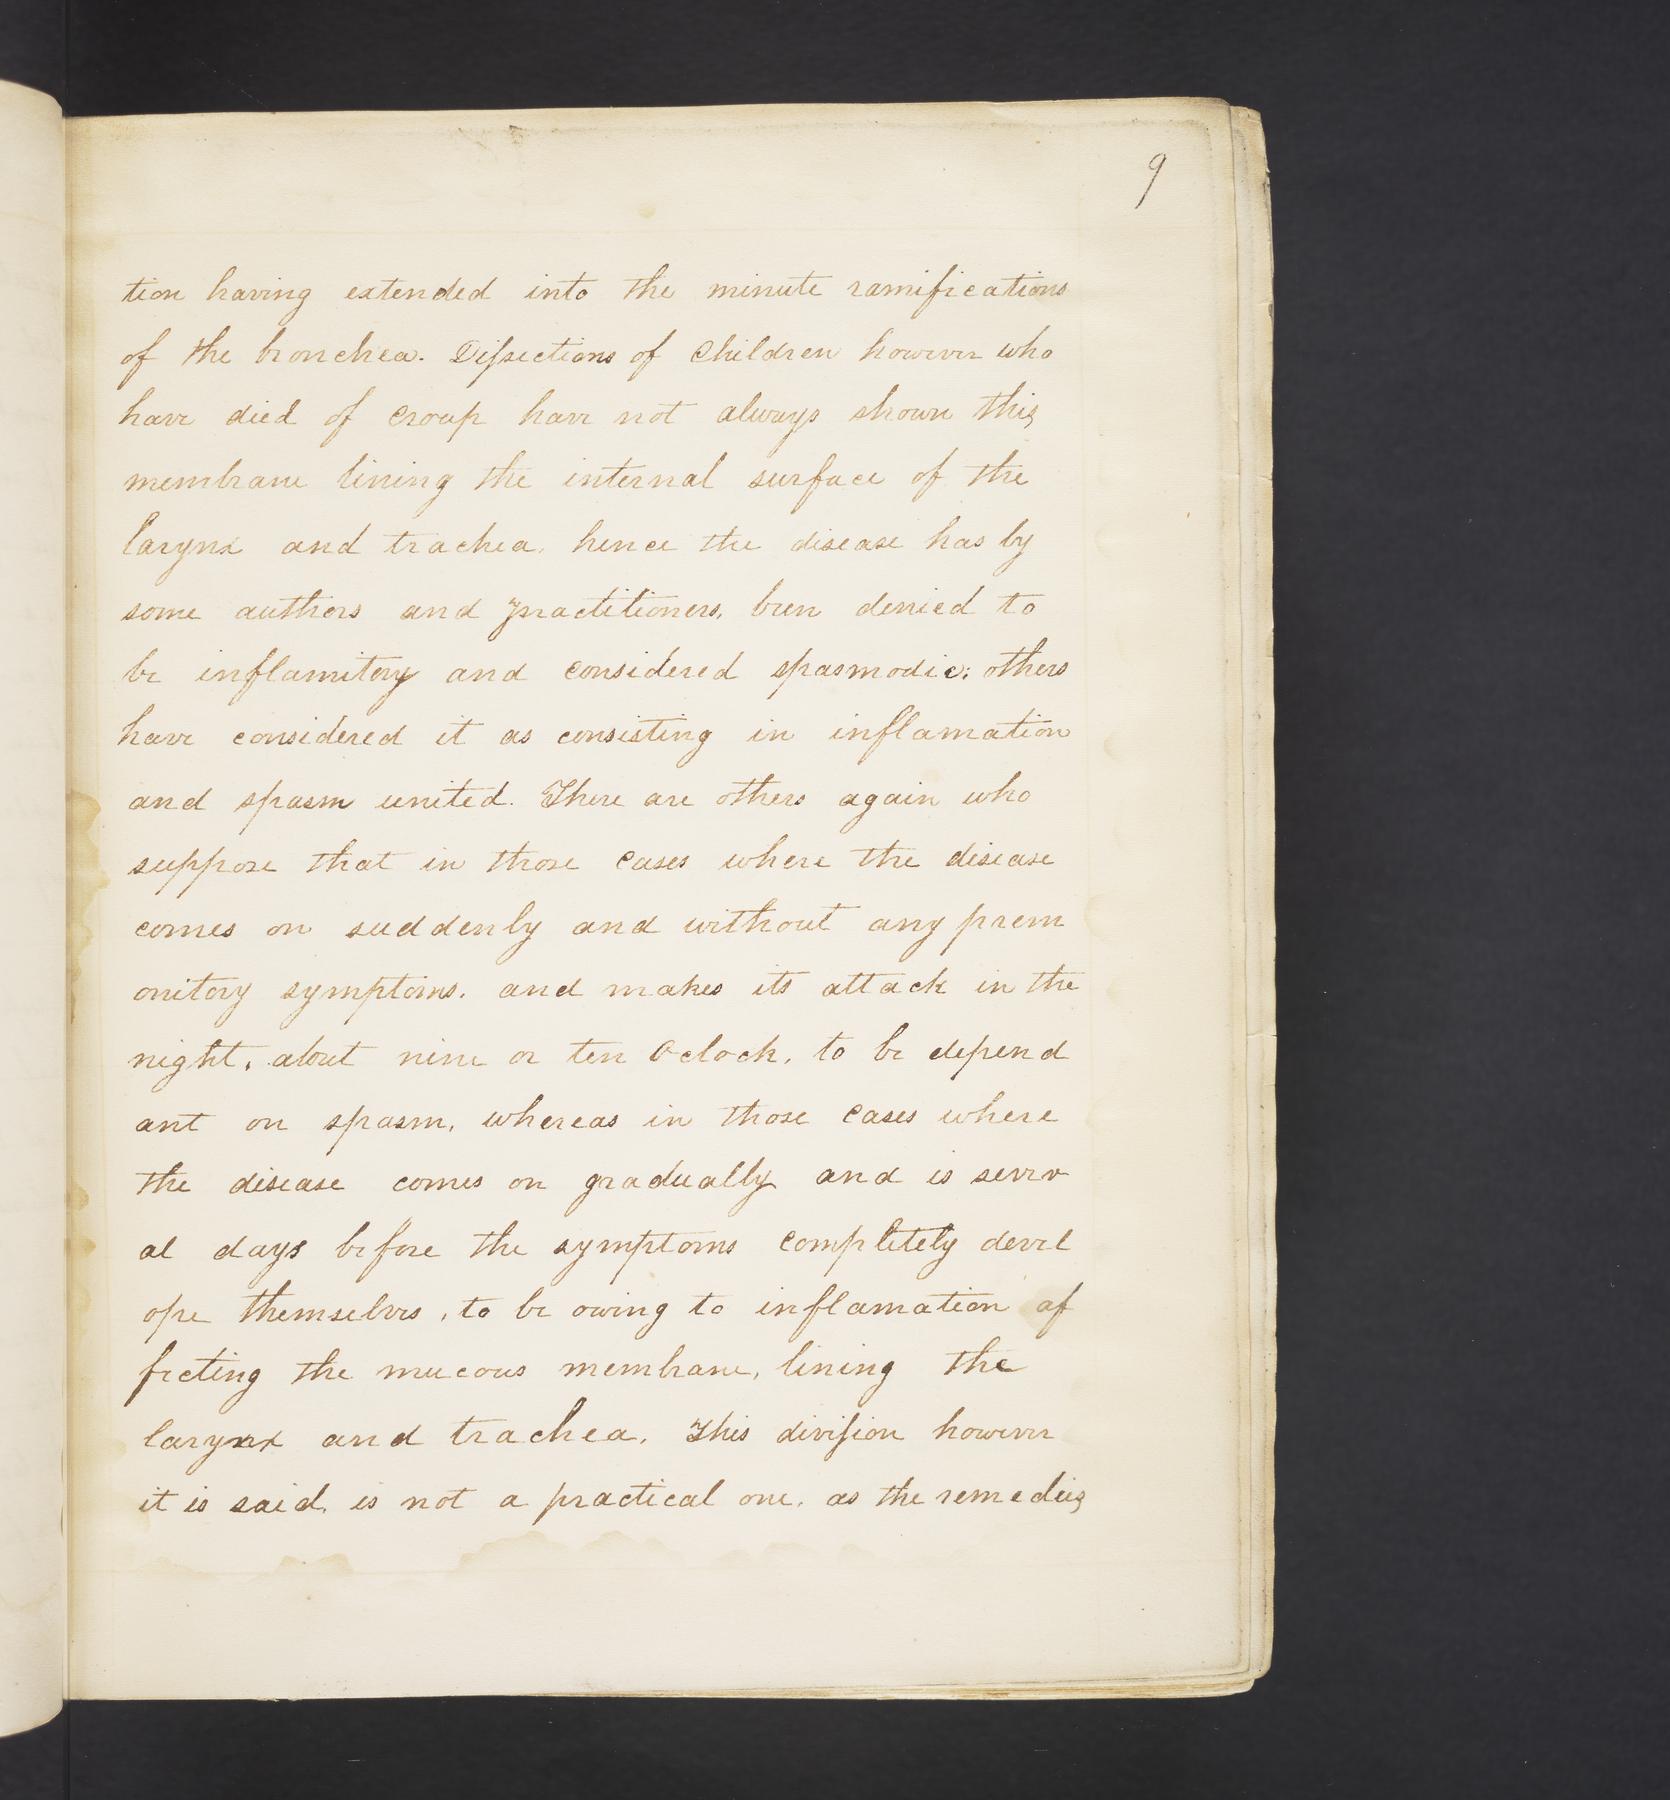 9
tion having extended into the minute ramifications
of the bronchea. Dissections of Children however who
have died of Croup have not always shown this
membrane lining the internal surface of the
larynx and trachea, hence the disease has by
some authors and practitioners, been denied to
be inflamitory and considered spasmodic; others
have considered it as consisting in inflamation
and spasm united. There are others again who
suppose that in those cases where the disease
comes on suddenly and without any prem
onitory symptoms, and makes its attack in the
night, about nine or ten Oclock, to be depend
ant on spasm, whereas in those cases where
the disease comes on gradually and is sever
al days before the symptoms completely devel
ope themselves, to be owing to inflamation af
fecting the mucous membrane, lining the
larynx and trachea. This division however
it is said, is not a practical one, as the remedies